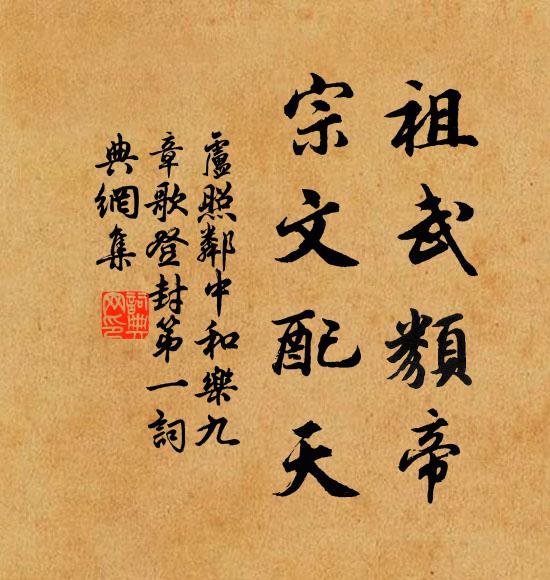 祖武類帝
宗文配天
盧照鄰中和樂九
章歌登封第一詞
典網集
詞典網印